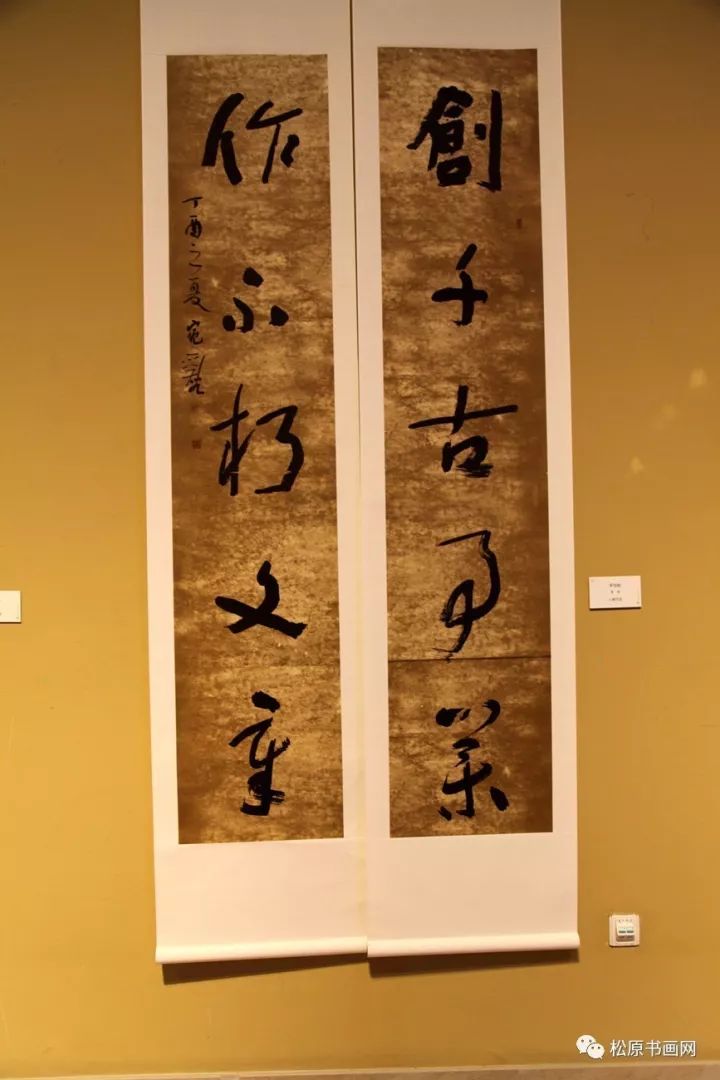 創千古事業
作不朽文章
丁酉之夏
松原书画网